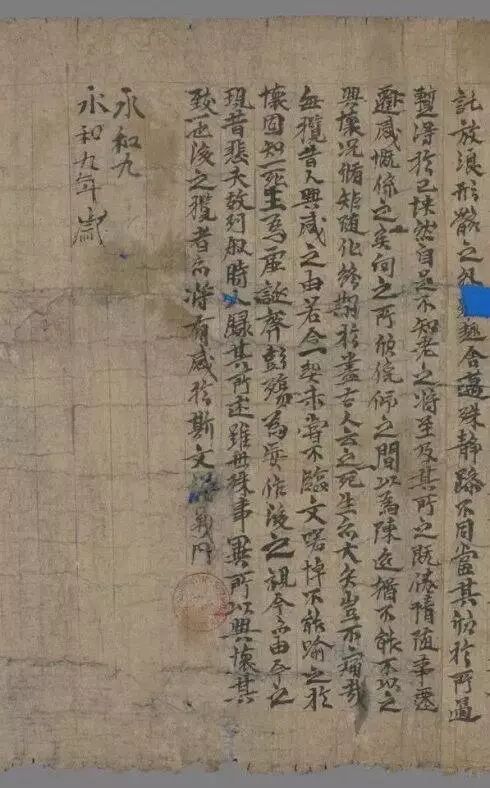 託放浪形骸之外趣舍萬殊静躁不同當其欣於所遇
蹔得於己怏然自足不知老之將至及其所之既惓情随事遷
感慨係之矣向之所欣俛仰之間以爲陳迹猶不能不以之
興懷況脩矩随化終期於盡古人云之死生亦大矣豈不痛哉
每攬昔人興感之由若合一契未嘗不臨文嗟悼不能喻之於
懷固知一死生爲虛誕齊彭殤爲妄作後之視今亦由今之
視昔悲夫故列叙時人録其所述雖世殊事異所以興懷其
致一也後之攬者亦將有感於斯文
永和九
永和九年歲